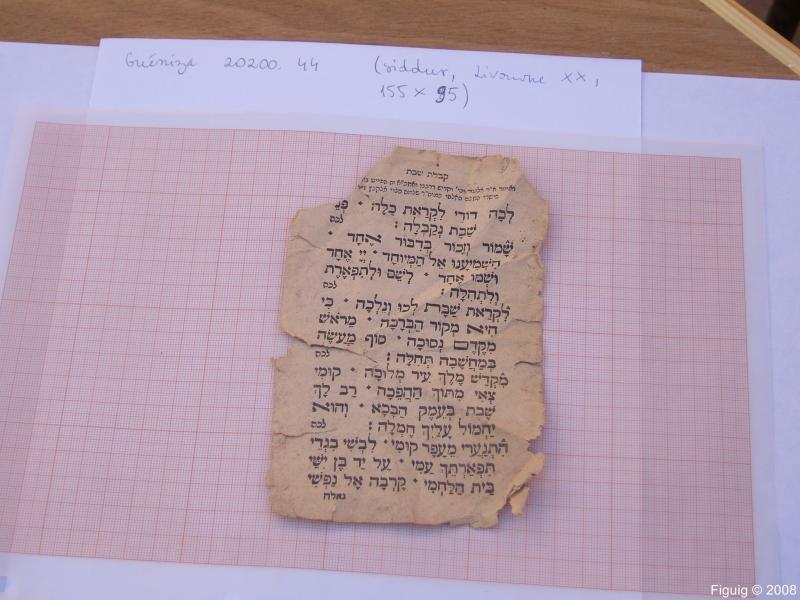 Guéniza 20200. 44 (siddur, Livourne XX,
155 x 95)
קבלת שבת
לְכָה דוֹדִי לִקְרַאת כַּלָּה · פְּנֵי
שַׁבָּת נְקַבְּלָה : לכה
שָׁמוֹר וְזָכוֹר בְּדִבּוּר אֶחָד ·
הִשְׁמִיעָנוּ אֵל הַמְיוּחָד · יְיָ אֶחָד
וּשְׁמוֹ אֶחָד · לְשֵׁם וּלְתִפְאֶרֶת
וְלִתְהִלָּה : לכה
לִקְרַאת שַׁבָּת לְכוּ וְנֵלְכָה · כִּי
הִיא מְקוֹר הַבְּרָכָה · מֵרֹאשׁ
מִקֶּדֶם נְסוּכָה · סוֹף מַעֲשֶׂה
בְּמַחֲשָׁבָה תְּחִלָּה : לכה
מִקְדַּשׁ מֶלֶךְ עִיר מְלוּכָה · קוּמִי
צְאִי מִתּוֹךְ הַהֲפֵכָה · רַב לָךְ
שֶׁבֶת בְּעֵמֶק הַבָּכָא · וְהוּא
יַחְמוֹל עָלַיִךְ חֶמְלָה : לכה
הִתְנַעֲרִי מֵעָפָר קוּמִי · לִבְשִׁי בִּגְדֵי
תִּפְאַרְתֵּךְ עַמִּי · עַל יַד בֶּן יִשַׁי
בֵּית הַלַּחְמִי · קָרְבָה אֶל נַפְשִׁי
גאלה
Figuig © 2008